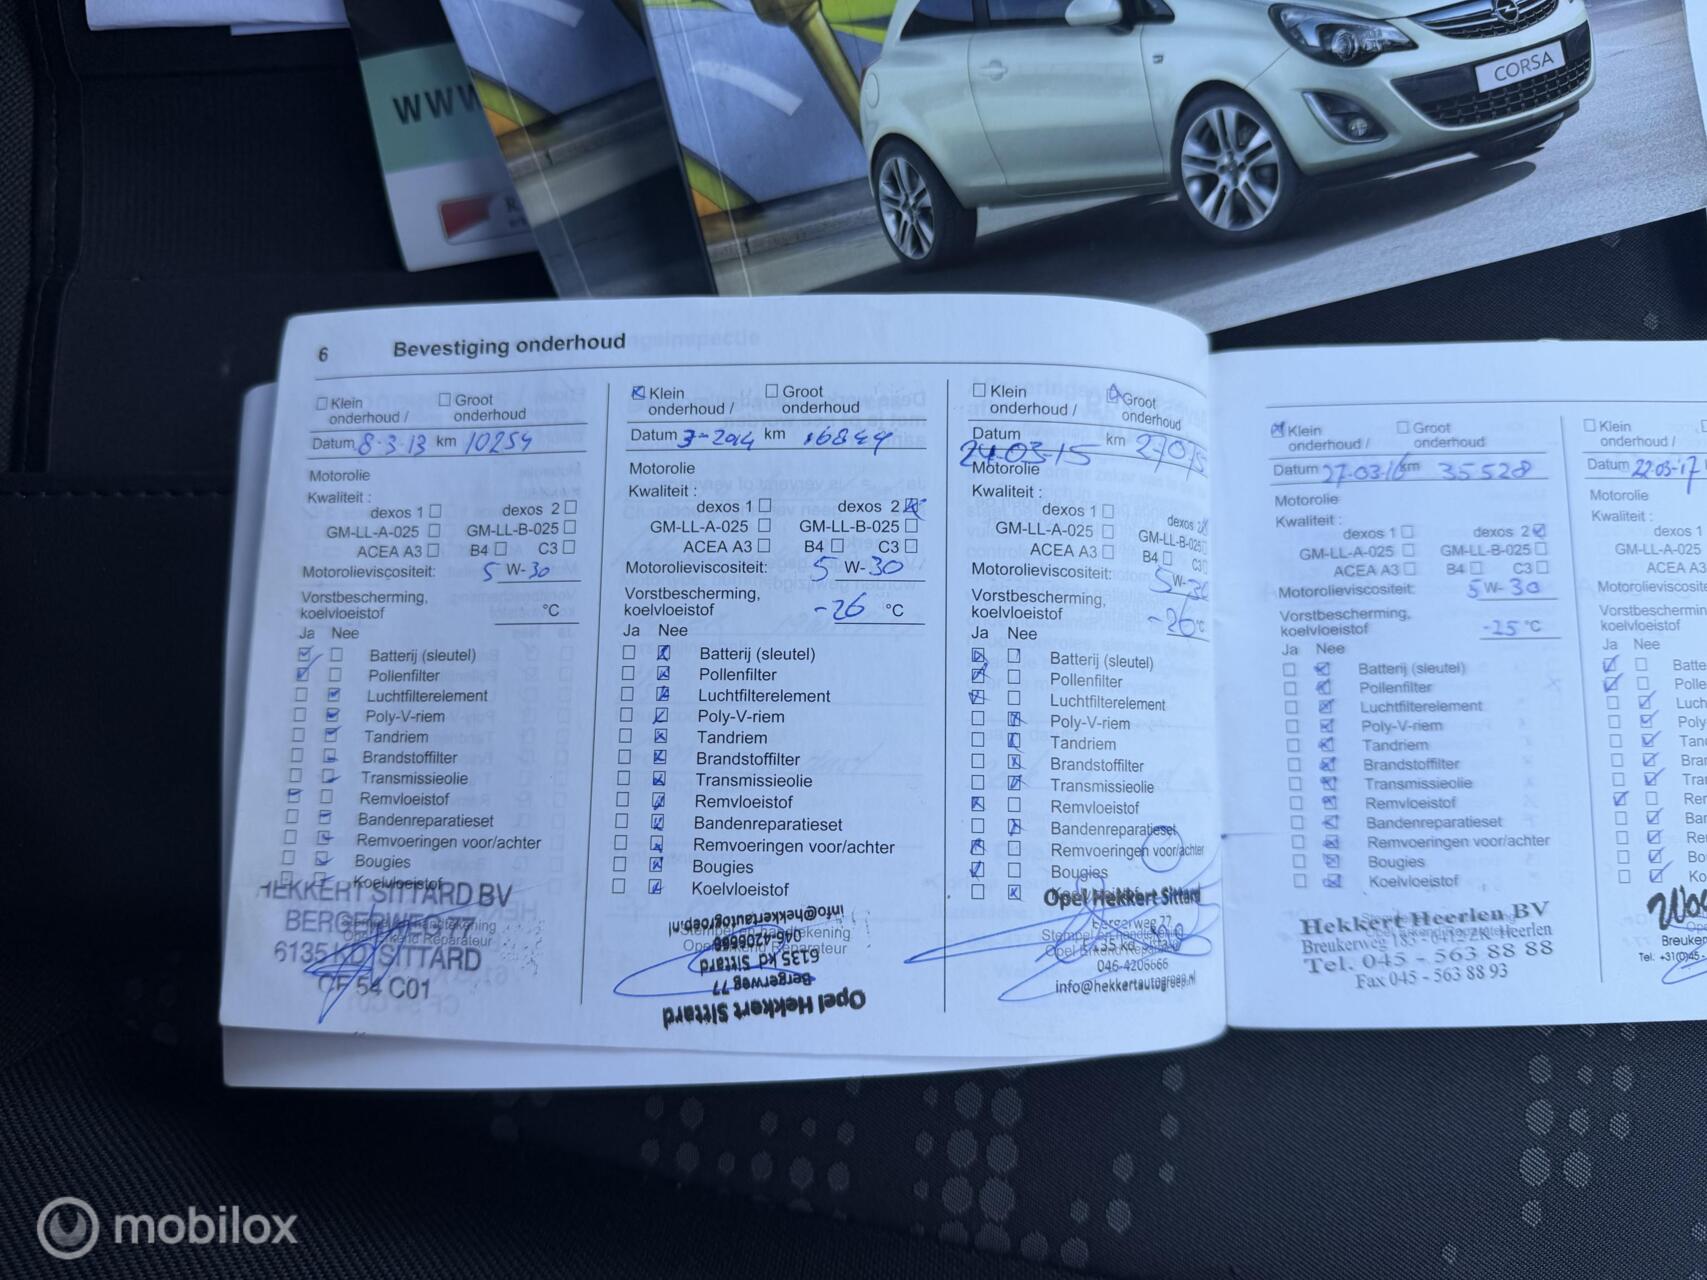 WWW
CORSA
6 Bevestiging onderhoud
Klein onderhoud / Groot onderhoud
Datum 8-3-13 km 10254
Motorolie
Kwaliteit :
dexos 1 dexos 2
GM-LL-A-025 GM-LL-B-025
ACEA A3 B4 C3
Motorolieviscositeit: 5 W-30
Vorstbescherming,
koelvloeistof °C
Ja Nee
Batterij (sleutel)
Pollenfilter
Luchtfilterelement
Poly-V-riem
Tandriem
Brandstoffilter
Transmissieolie
Remvloeistof
Bandenreparatieset
Remvoeringen voor/achter
Bougies
Koelvloeistof
HEKKERT SITTARD BV
BERGERWEG 77
6135 KD SITTARD
CF 54 C01
Klein onderhoud / Groot onderhoud
Datum 3-2014 km 16849
Motorolie
Kwaliteit :
dexos 1 dexos 2
GM-LL-A-025 GM-LL-B-025
ACEA A3 B4 C3
Motorolieviscositeit: 5 W-30
Vorstbescherming,
koelvloeistof -26 °C
Ja Nee
Batterij (sleutel)
Pollenfilter
Luchtfilterelement
Poly-V-riem
Tandriem
Brandstoffilter
Transmissieolie
Remvloeistof
Bandenreparatieset
Remvoeringen voor/achter
Bougies
Koelvloeistof
Stempel en handtekening
Opel Erkend Reparateur
Opel Hekkert Sittard
Bergerweg 77
6135 kd Sittard
046-4206666
info@hekkertautogroep.nl
Klein onderhoud / Groot onderhoud
Datum 24-03-15 km 27075
Motorolie
Kwaliteit :
dexos 1 dexos 2
GM-LL-A-025 GM-LL-B-025
ACEA A3 B4 C3
Motorolieviscositeit: 5 W-30
Vorstbescherming,
koelvloeistof -26 °C
Ja Nee
Batterij (sleutel)
Pollenfilter
Luchtfilterelement
Poly-V-riem
Tandriem
Brandstoffilter
Transmissieolie
Remvloeistof
Bandenreparatieset
Remvoeringen voor/achter
Bougies
Opel Hekkert Sittard
Bergerweg 77
6135 kd Sittard
046-4206666
info@hekkertautogroep.nl
Klein onderhoud / Groot onderhoud
Datum 27-03-16 km 35528
Motorolie
Kwaliteit :
dexos 1 dexos 2
GM-LL-A-025 GM-LL-B-025
ACEA A3 B4 C3
Motorolieviscositeit: 5 W-30
Vorstbescherming,
koelvloeistof -25 °C
Ja Nee
Batterij (sleutel)
Pollenfilter
Luchtfilterelement
Poly-V-riem
Tandriem
Brandstoffilter
Transmissieolie
Remvloeistof
Bandenreparatieset
Remvoeringen voor/achter
Bougies
Koelvloeistof
Hekkert Heerlen BV
Breukerweg 183 - 6412 ZK Heerlen
Tel. 045 - 563 88 88
Fax 045 - 563 88 93
Klein
onderhoud /
Datum 22-03-17
Motorolie
Kwaliteit :
dexos 1
GM-LL-A-025
ACEA A3
Motorolieviscositeit:
Vorstbescherming,
koelvloeistof
Ja Nee
mobilox